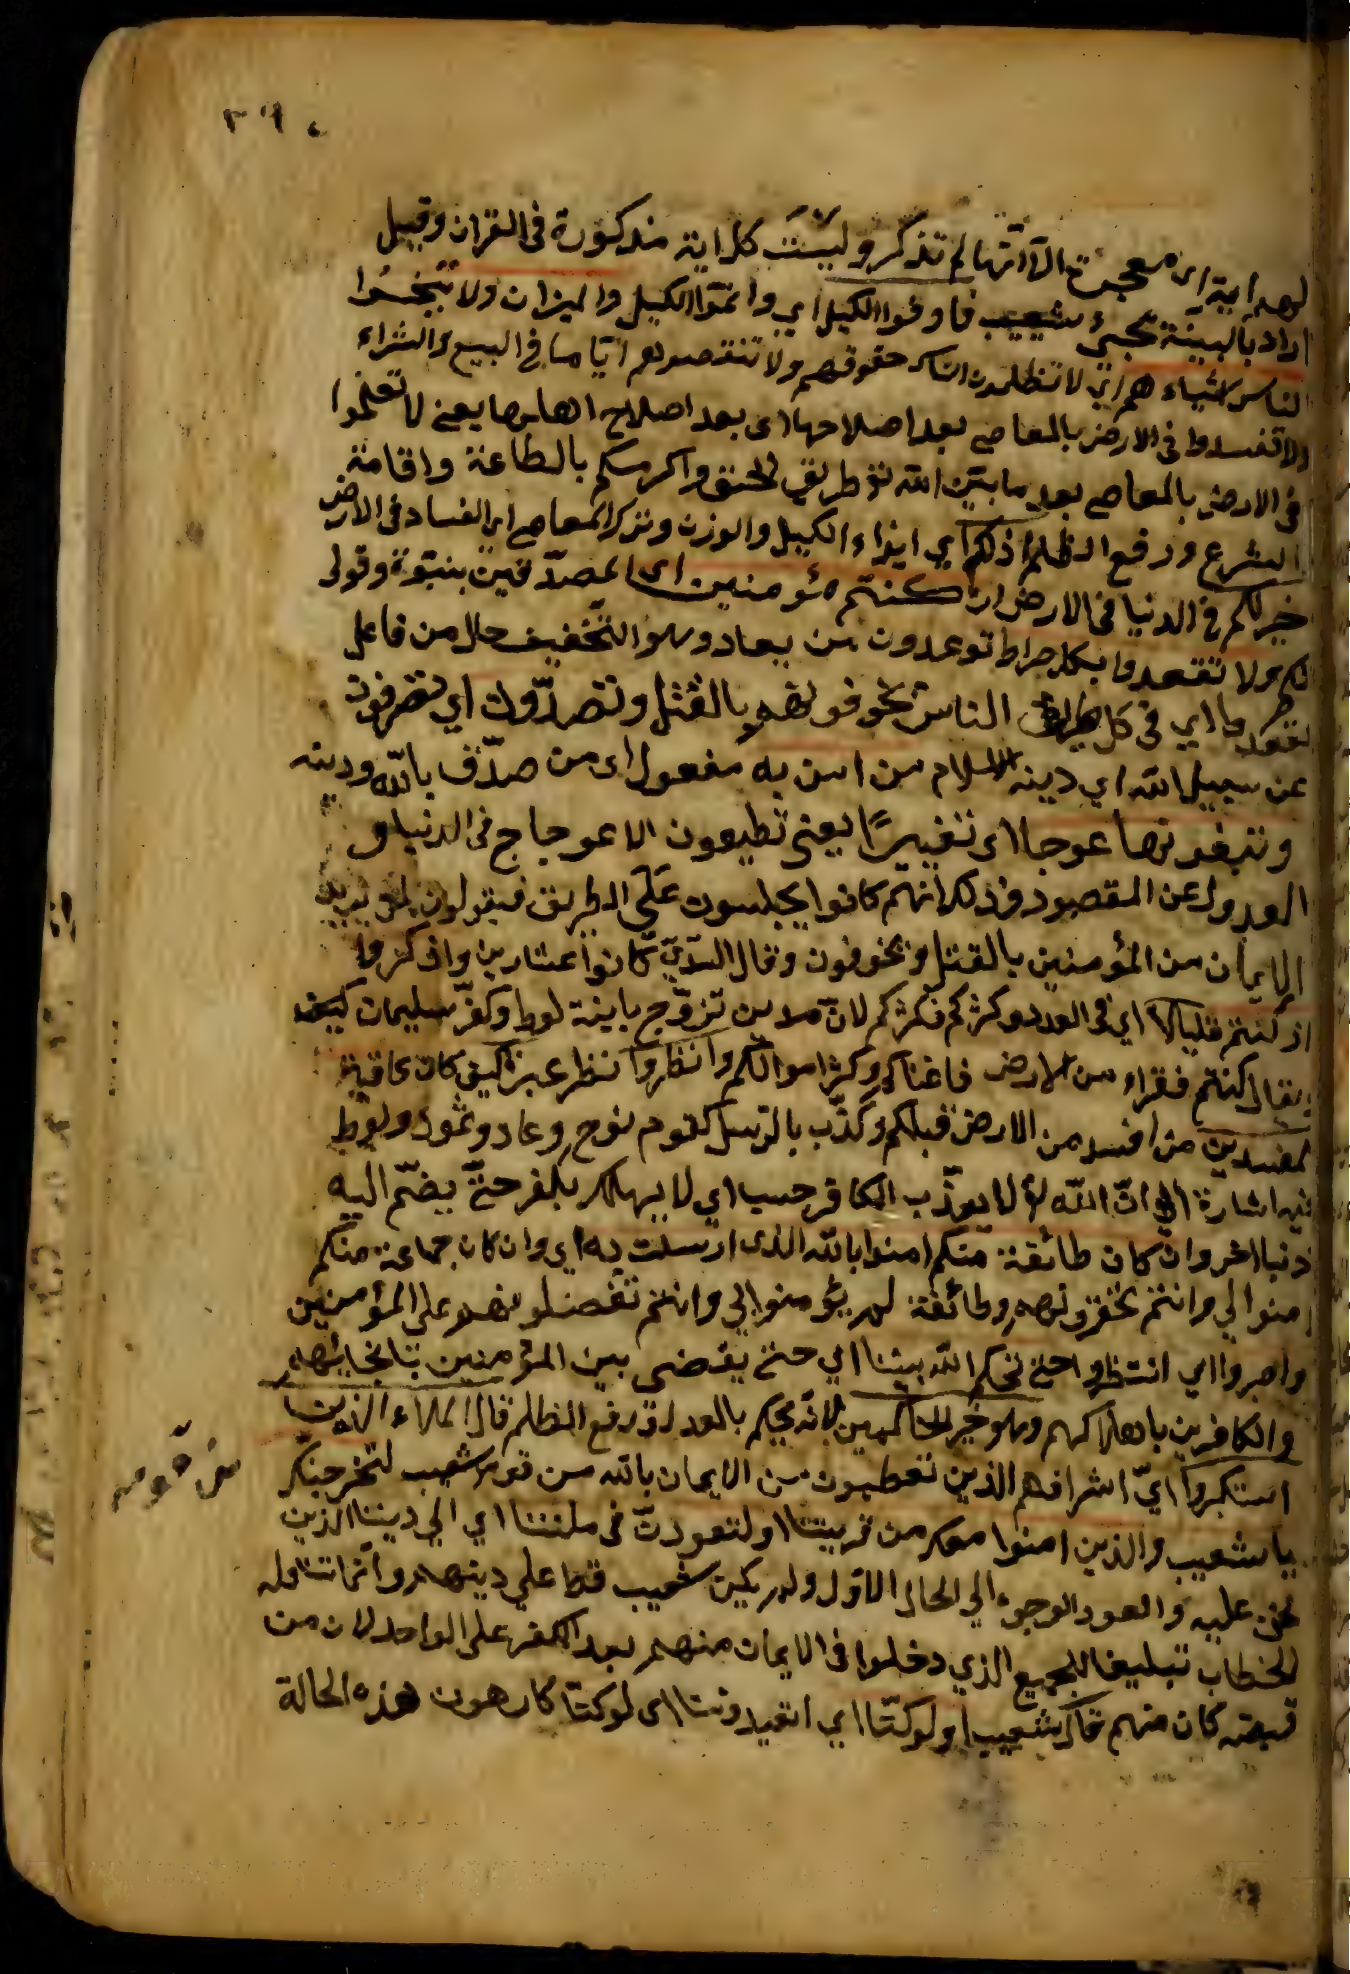 لهم اية اى معجزة الا انها لم تذكر وليست كل اية مذكورة فى القران وقيل
اراد بالبينة مجئ شعيب فاوفوا الكيل اي واتموا الكيل والميزان ولا تبخسوا
الناس اشياءهم اي لا تظلموا الناس حقوقهم ولا تنقصوهم اياها في البيع والشراء
ولا تفسدوا فى الارض بالمعاصي بعد اصلاحها اى بعد اصلاح اهلها يعنى لا تعلموا
فى الارض بالمعاصي بعد ما بين الله تع طريق الحق وامركم بالطاعة واقامة
الشرع ورفع الظلم ذلكم اي ايفاء الكيل والوزن وترك المعاصي اى الفساد فى الارض
خير لكم فى الدنيا فى الارض ان كنتم مؤمنين اى المصدقين بنبوة وقولى
لكم ولا تقعدوا بكل صراط توعدون من يعاد وهو التخفيف حال من فاعل
تقعدوا اي فى كل طريق الناس تخوفونهم بالقتل وتصدون اي تصرفون
عن سبيل الله اي دينه الاسلام من امن به مفعول اى من صدق بالله ودينه
وتبغونها عوجا اى تغييرا يعنى تطيعون الاعوجاج فى الدنيا و
العدول عن المقصود وذلك انهم كانوا يجلسون على الطريق فيقولون لمن يريد
الايمان من المؤمنين بالقتل ويخوفون وقال السدي كانوا عشارين واذكروا
اذ كنتم قليلا اي فى العدد وكثركم فكثركم لان مدين تزوج بابنة لوط وكفر سليمان كيف
يقال كنتم فقراء من الارض فاغناكم وكثر اموالكم وانظروا نظر عبرة كيف كان عاقبة
المفسدين من افسد من الارض قبلكم وكذب بالرسل كقوم نوح وعاد وثمود ولوط
فيه اشارة الى ان الله تع لا يعذب الكافر حسب اي لا يهلك بكفر حتى يضم اليه
ذنبا اخر وان كان طائفة منكم امنوا بالله الذى ارسلت به اي وان كان جماعة منكم
امنوا لي وانتم تحقرونهم وطائفة لم يؤمنوا لي وانتم تفضلونهم على المؤمنين
واصبروا اي انتظروا حتى يحكم الله بيننا اي حتى يقضى بين المؤمنين بانجائهم
والكافرين باهلاكهم وهو خير الحاكمين لانه يحكم بالعدل ورفع الظلم قال الملاء الذين
استكبروا اي اشرافهم الذين تعظمون من الايمان بالله من قوم شعيب لنخرجنك
يا شعيب والذين امنوا معك من قريتنا او لتعودن فى ملتنا اي الي ديننا الذين
نحن عليه والعود الرجوع الي الحال الاول ولم يكن شعيب قط على دينهم وانما تناوله
الخطاب تبليغا للجميع الذي دخلوا فى الايمان منهم بعد الكفر على الواحد لان من
تبعه كان منهم قال شعيب اولو كنا اي اتعيدوننا اى لو كنا كارهون هذه الحالة